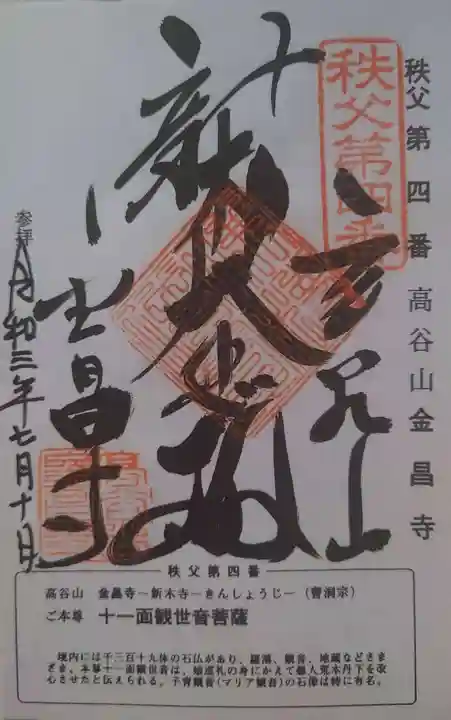 秩父第四番 高谷山金昌寺
秩父第四番
高谷山
十一面
金昌寺
参拝
令和三年七月十日
秩父第四番
高谷山 金昌寺―新木寺―きんしょうじ―(曹洞宗)
ご本尊 十一面観世音菩薩
境内には千三百十九体の石仏があり、羅漢、観音、地蔵などさま
ざま。本尊十一面観世音は、巡礼の身にかえて悪人荒木丹下を改
心させたと伝えられる。子育観音(マリア観音)の石像は特に有名。